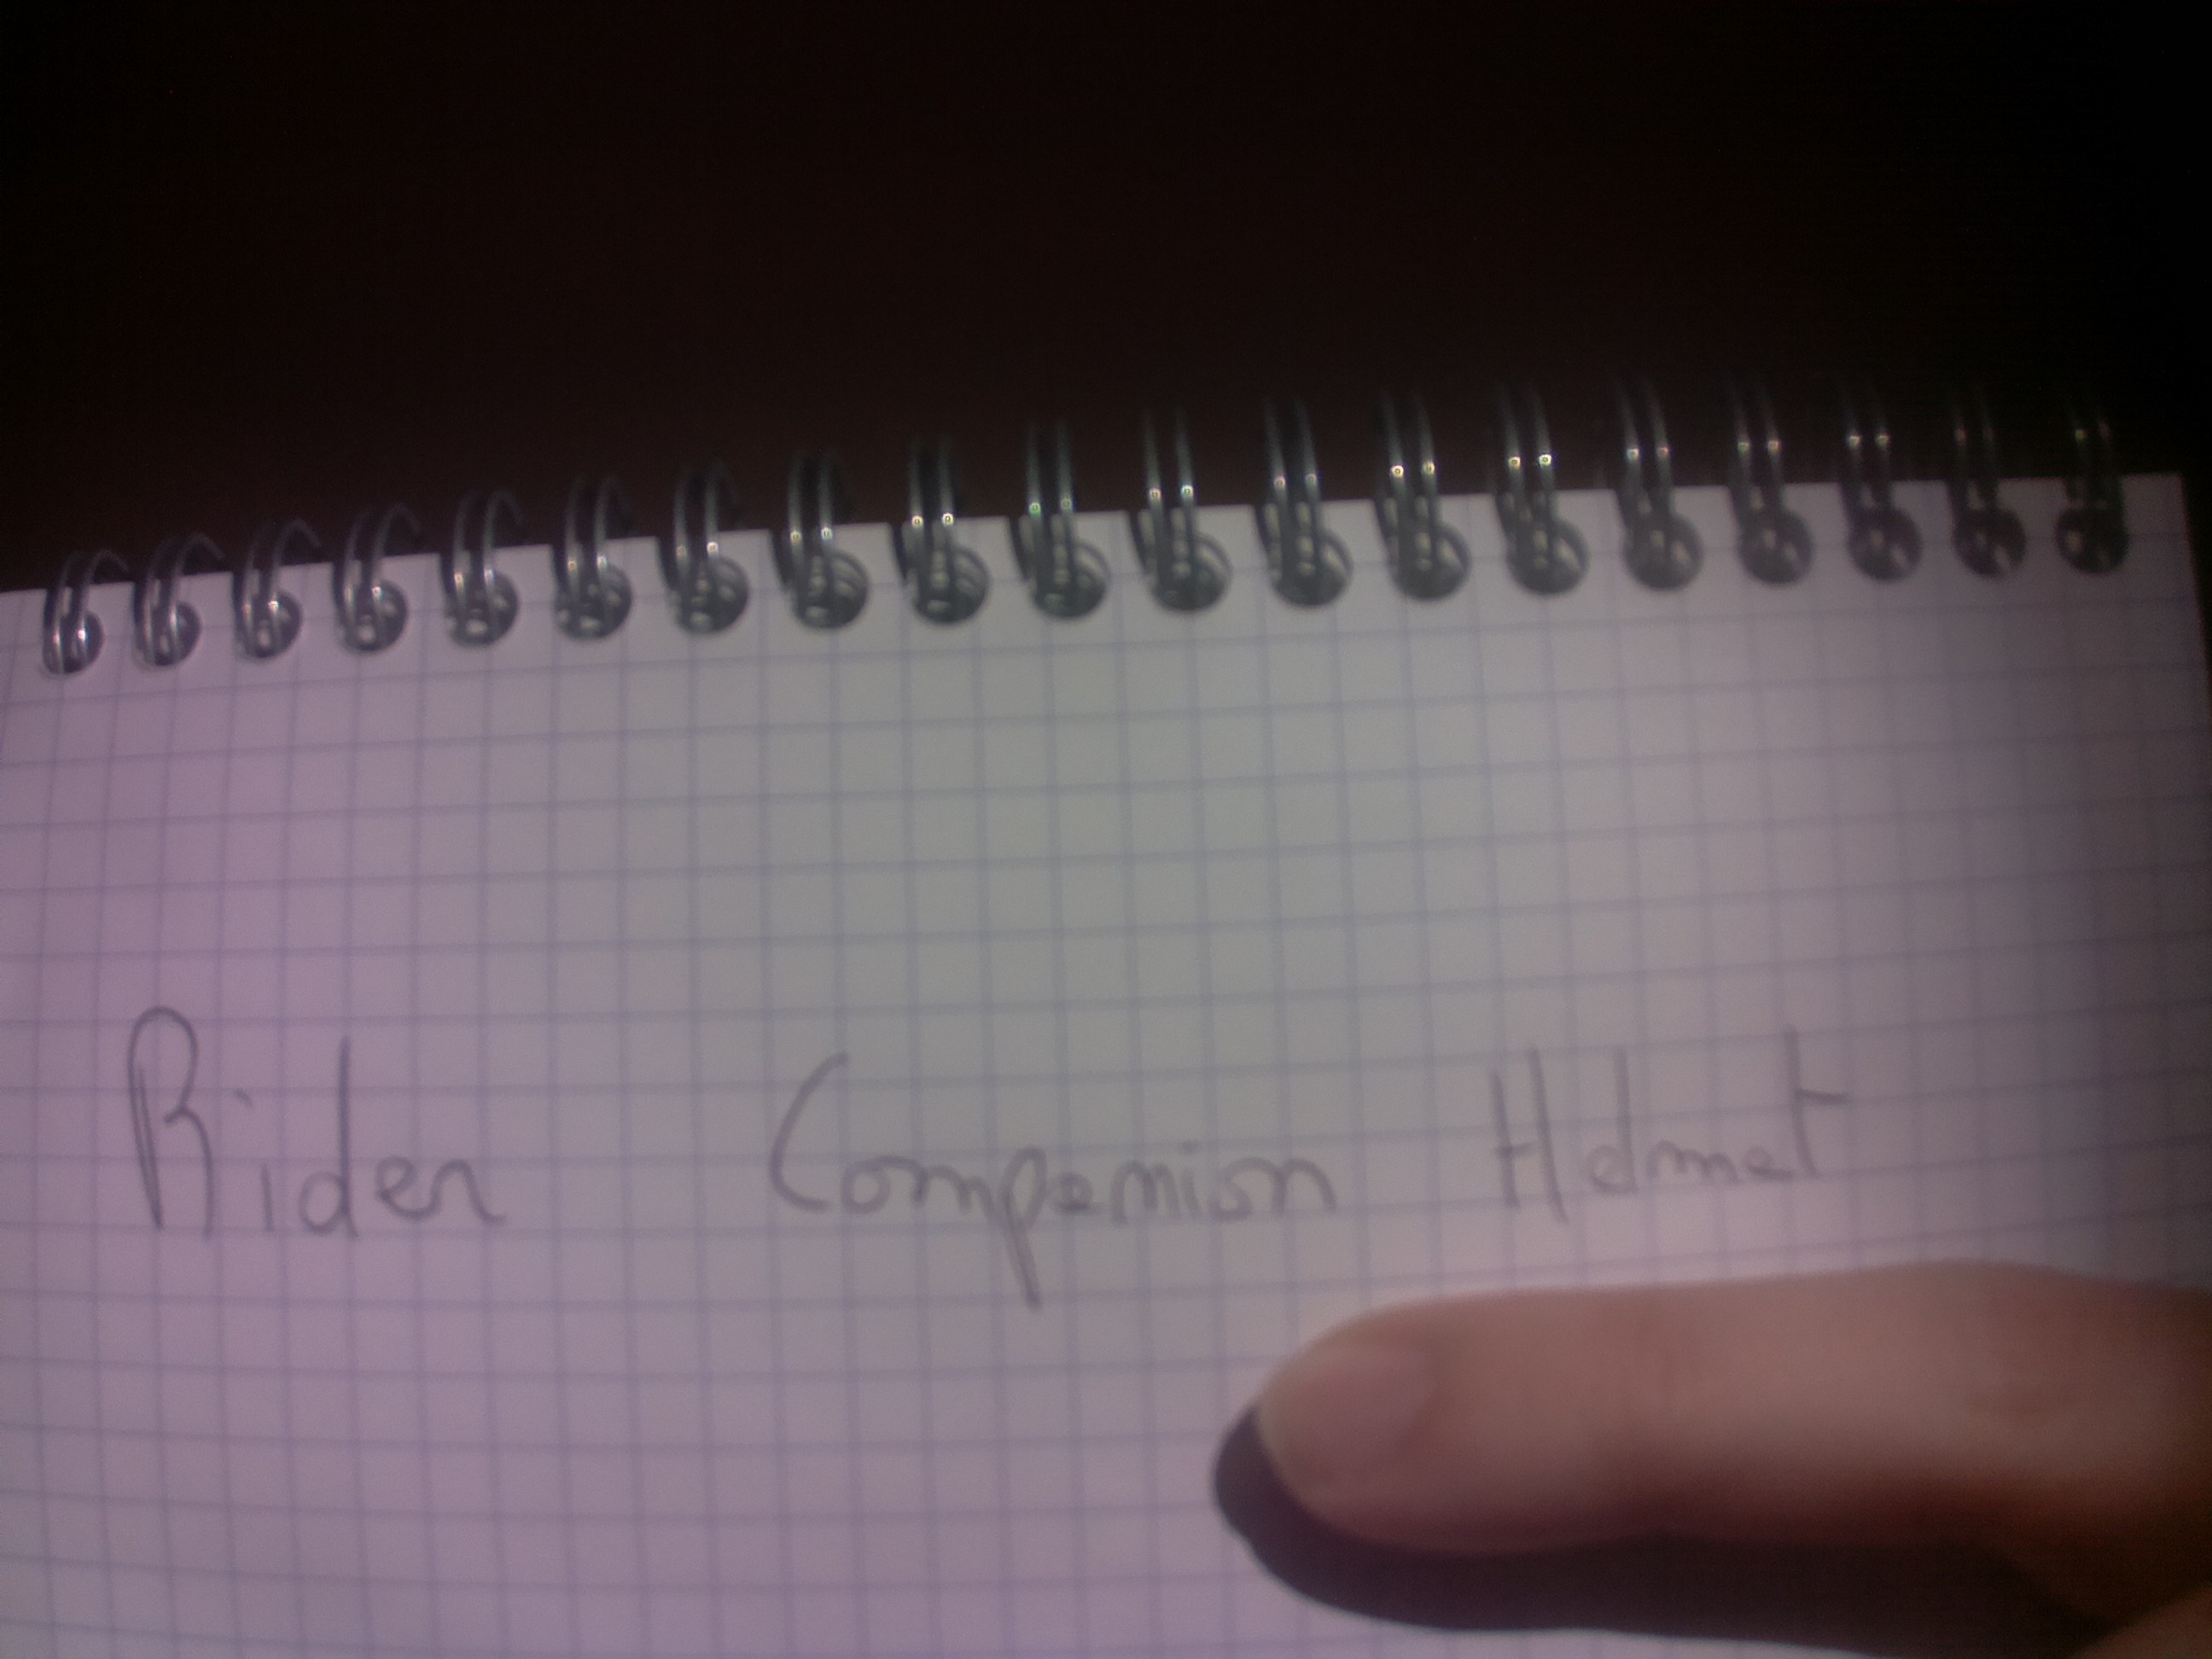 Rider Companion Helmet